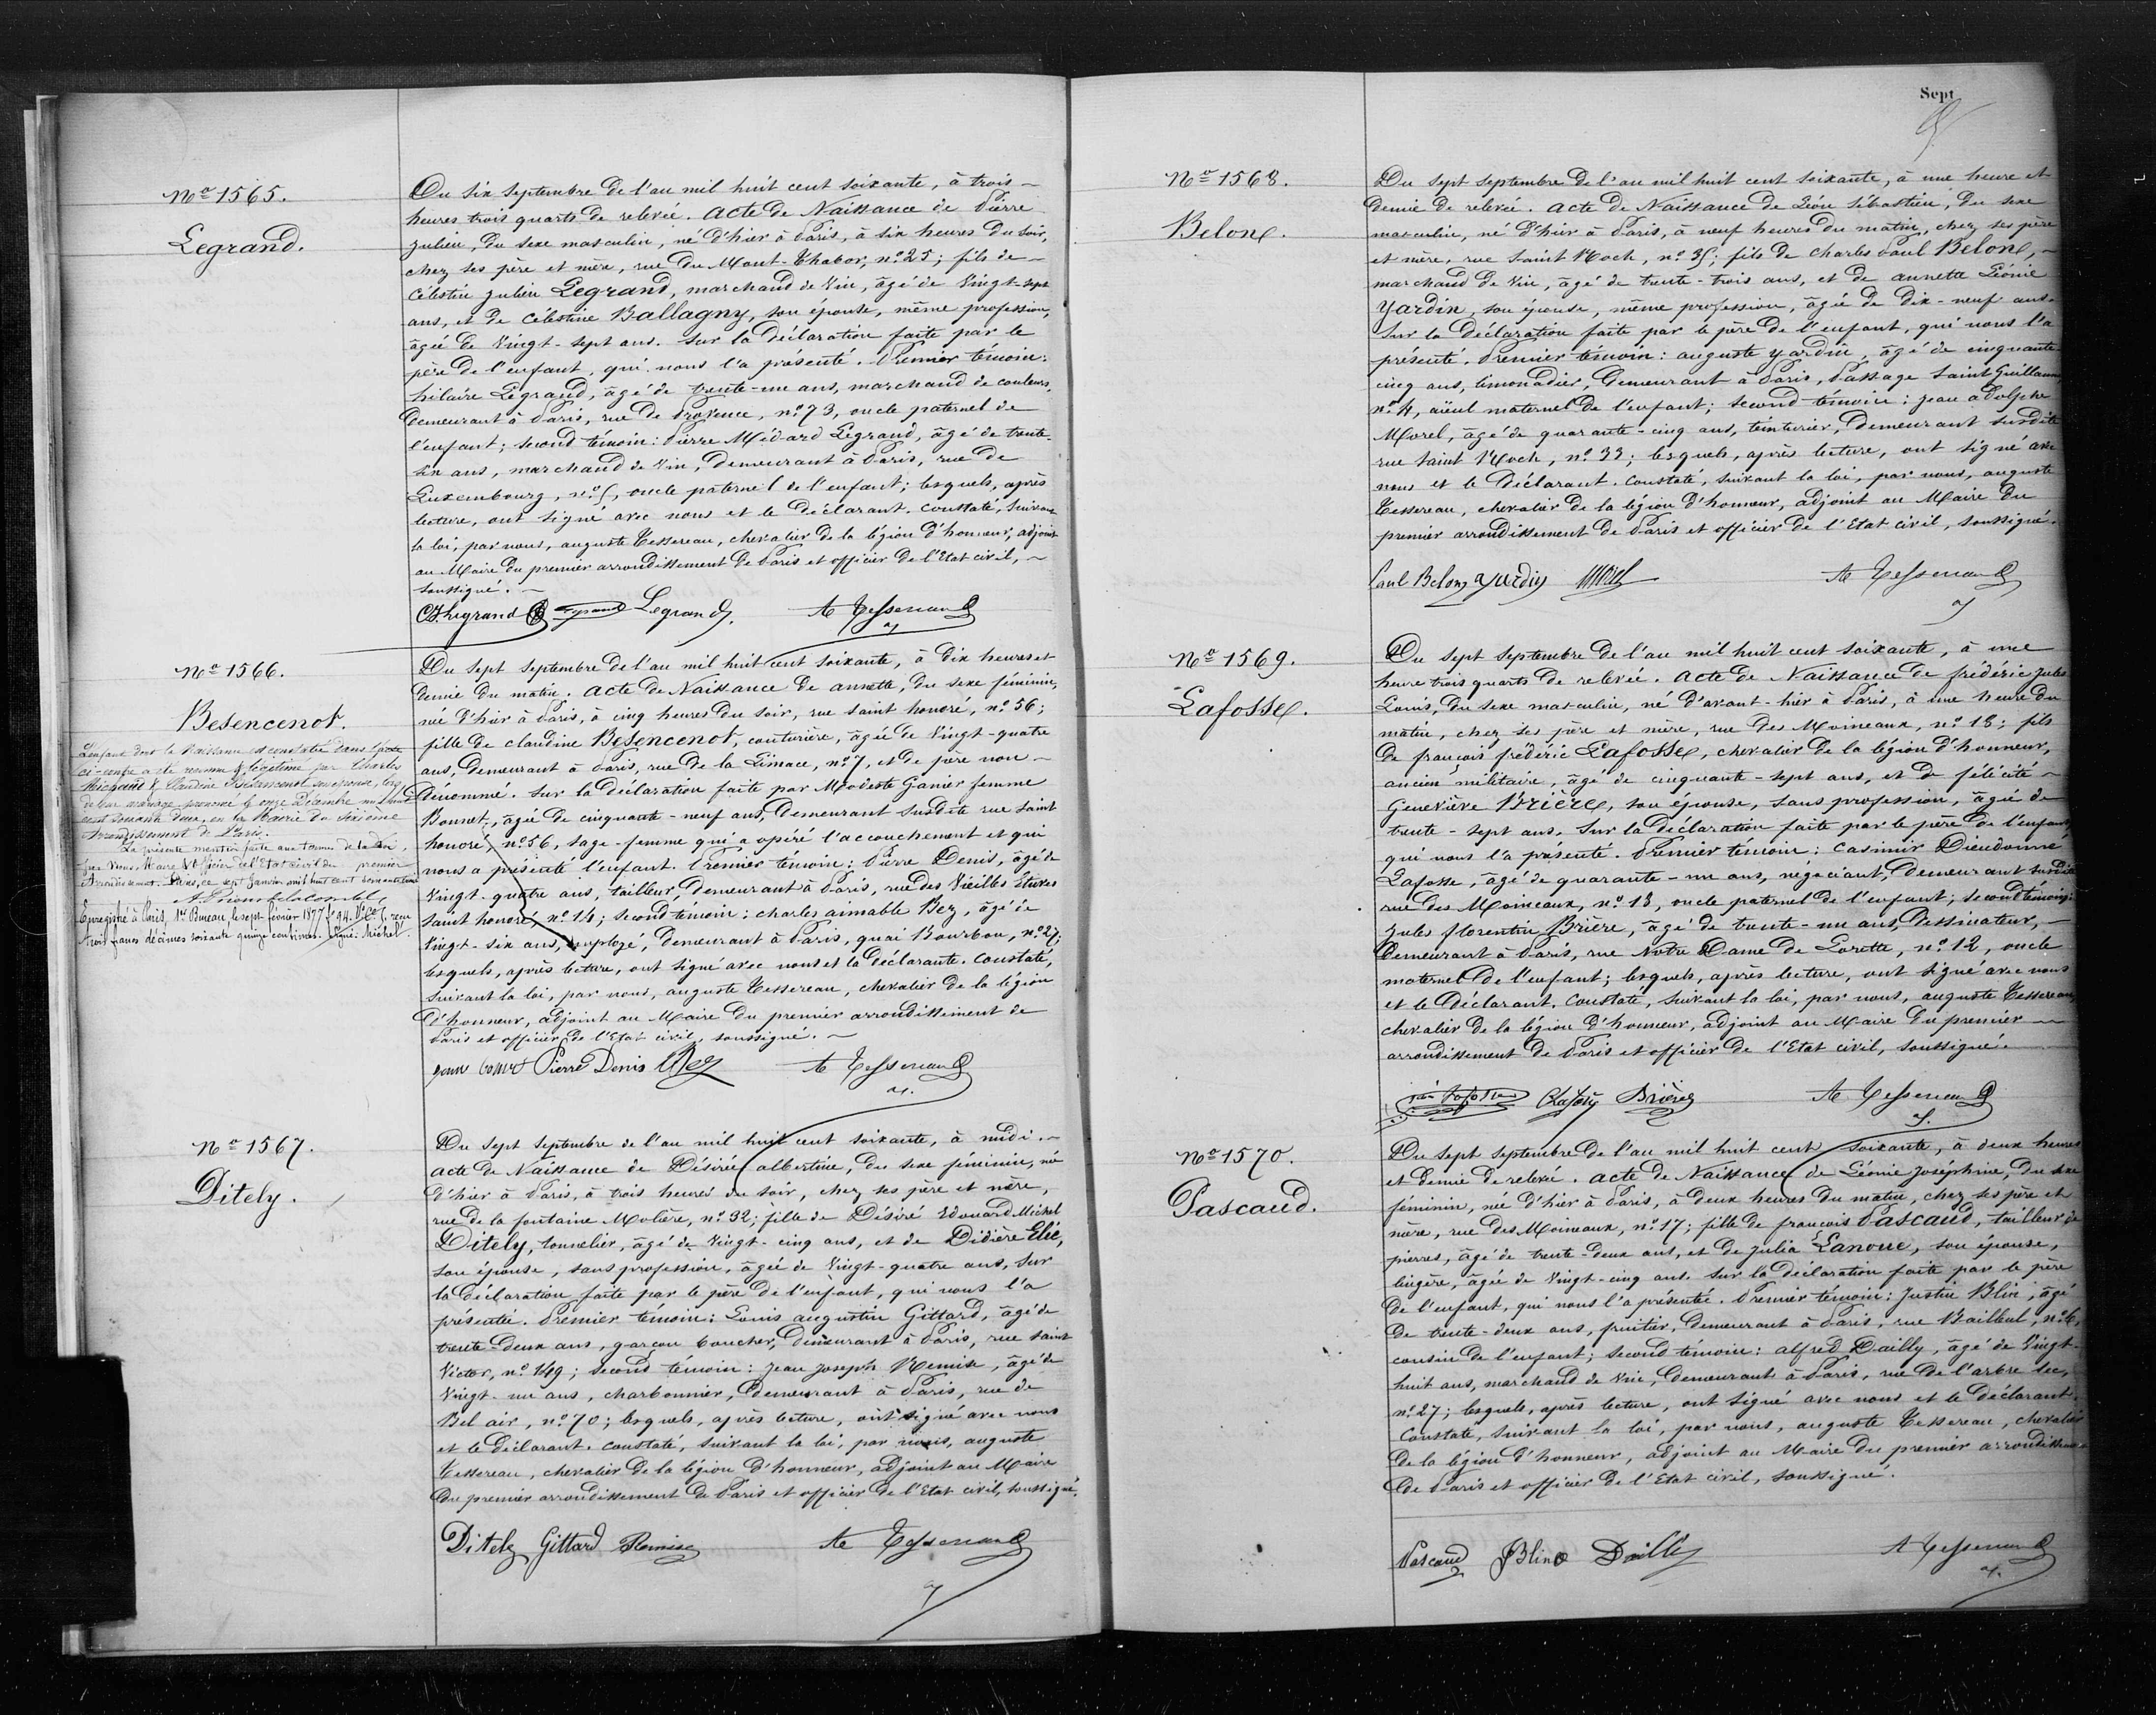 No 1565.
Legrand.
Du six Septembre de l'an mil huit cent soixante, à trois
heures trois quarts de relevée. acte de Naissance de Pierre
Julien, du sexe masculin, né d'hier à Paris, à six heures du soir,
chez ses père et mère, rue du Mont-Thabor, no 25; fils de
Célestin Julien Legrand, marchand de Vin, âgé de Vingt-sept
ans, et de Célestine Ballagny, son épouse, même profession,
âgée de Vingt-sept ans. Sur la déclaration faite par le
père de l'enfant, qui nous l'a présenté. Premier témoin:
hilaire Legrand, âgé de trente-un ans, marchand de couleurs,
demeurant à Paris, rue de Provence, no 73, oncle paternel de
l'enfant; second témoin: Pierre Médard Legrand, âgé de trente-
six ans, marchand de Vin, demeurant à Paris, rue de
Luxembourg, no 5, oncle paternel de l'enfant; lesquels, après
lecture, ont signé avec nous et le déclarant. Constaté, Suivant
la loi, par nous, auguste Tessereau, chevalier de la légion d'honneur, adjoint
au Maire du premier arrondissement de Paris et officier de l'Etat civil,
soussigné.
CJ Legrand Legrand A Tessereau
No 1566.
Besencenot.
L'enfant dont la Naissance est constatée dans l'acte
ci-contre a été reconnu & légitimé par Charles
Michaud & Claudine Besencenot son épouse, lors
de leur mariage prononcé le onze Décembre mil huit
cent soixante deux, en la Mairie du sixième
Arrondissement de Paris.
La présente mention faite aux termes de la Loi,
par Nous, Maire & Officier de l'Etat civil du premier
Arrondissement. Paris, ce sept Janvier mil huit cent
Enregistré à Paris, 1er Bureau, le sept février 1877 fo 94. Vo Ce 7. reçu
trois francs décimes soixante quinze centimes. Signé: Michel.
Du sept Septembre de l'an mil huit cent soixante, à dix heures et
demie du matin. acte de Naissance de annette, du sexe féminin,
née d'hier à Paris, à cinq heures du soir, rue saint honoré, no 56;
fille de claudine Besencenot, couturière, âgée de Vingt-quatre
ans, demeurant à Paris, rue de la Limace, no 7, et de père non
dénommé. Sur la déclaration faite par Modeste Ganier femme
Bonnet, âgée de cinquante-neuf ans, demeurant susdite rue saint
honoré, no 56, sage-femme qui a opéré l'accouchement et qui
nous a présenté l'enfant. Premier témoin: Pierre Denis, âgé de
Vingt-quatre ans, tailleur, demeurant à Paris, rue des Vieilles Etuves
Saint honoré, no 14; second témoin: charles aimable Bez, âgé de
Vingt-six ans, employé, demeurant à Paris, quai Bourbon, no 27;
lesquels, après lecture, ont signé avec nous et la déclarante. Constaté,
suivant la loi, par nous, auguste Tessereau, chevalier de la légion
d'honneur, adjoint au Maire du premier arrondissement de
Paris et officier de l'Etat civil, soussigné.
Pierre Denis Bez A Tessereau
No 1567.
Ditely.
Du sept Septembre de l'an mil huit cent soixante, à midi.
acte de Naissance de Désirée albertine, du sexe féminin, née
d'hier à Paris, à trois heures du soir, chez ses père et mère,
rue de la fontaine Molière, no 32; fille de Désiré Edouard Michel
Ditely, tonnelier, âgé de Vingt-cinq ans, et de Didière Elié,
son épouse, sans profession, âgée de Vingt-quatre ans, Sur
la déclaration faite par le père de l'enfant, qui nous l'a
présentée. Premier témoin: Louis augustin Gittard, âgé de
trente-deux ans, garçon boucher, demeurant à Paris, rue saint
Victor, no 149; second témoin: Jean Joseph Remise, âgé de
Vingt-un ans, charbonnier, demeurant à Paris, rue de
Bel air, no 70; lesquels, après lecture, ont signé avec nous
et le déclarant. constaté, suivant la loi, par nous, auguste
Tessereau, chevalier de la légion d'honneur, adjoint au Maire
du premier arrondissement de Paris et officier de l'Etat civil, soussigné.
Ditely Gittard Remise A Tessereau
Sept
No 1568.
Belon.
Du sept septembre de l'an mil huit cent soixante, à une heure et
demie de relevée. acte de Naissance de Léon Sébastien, du sexe
masculin, né d'hier à Paris, à neuf heures du matin, chez ses père
et mère, rue Saint Roch, no 35; fils de charles Paul Belon,
marchand de Vin, âgé de trente-trois ans, et de annette Léonie
Yardin, son épouse, même profession, âgée de dix-neuf ans.
Sur la déclaration faite par le père de l'enfant, qui nous l'a
présenté. Premier témoin: auguste Yardin, âgé de cinquante-
cinq ans, limonadier, demeurant à Paris, Passage Saint Guillaume,
no 4, aïeul maternel de l'enfant; second témoin: jean adolphe
Morel, âgé de quarante-cinq ans, teinturier, demeurant susdite
rue Saint Roch, no 33; lesquels, après lecture, ont signé avec
nous et le déclarant. constaté, suivant la loi, par nous, auguste
Tessereau, chevalier de la légion d'honneur, adjoint au Maire du
premier arrondissement de Paris et officier de l'Etat civil, soussigné.
Paul Belon Yardin Morel A Tessereau
No 1569.
Lafosse.
Du sept Septembre de l'an mil huit cent soixante, à une
heure trois quarts de relevée. acte de Naissance de frédéric Jules
Louis, du sexe masculin, né d'avant-hier à Paris, à une heure du
matin, chez ses père et mère, rue des Moineaux, no 18; fils
de françois frédéric Lafosse, chevalier de la légion d'honneur,
ancien militaire, âgé de cinquante-sept ans, et de félécité
Geneviève Brière, son épouse, sans profession, âgée de
trente-sept ans. Sur la déclaration faite par le père de l'enfant,
qui nous l'a présenté. Premier témoin: Casimir Dieudonné
Lafosse, âgé de quarante-un ans, négociant, demeurant susdite
rue des Moineaux, no 18, oncle paternel de l'enfant; second témoin:
Jules florentin Brière, âgé de trente-un ans, dessinateur,
demeurant à Paris, rue Notre Dame de Lorette, no 12, oncle
maternel de l'enfant; lesquels, après lecture, ont signé avec nous
et le déclarant. Constaté, suivant la loi, par nous, auguste Tessereau,
chevalier de la légion d'honneur, adjoint au Maire du premier
arrondissement de Paris et officier de l'Etat civil, soussigné.
Lafosse Brière A Tessereau
No 1570.
Pascaud.
Du sept septembre de l'an mil huit cent soixante, à deux heures
et demie de relevée. acte de Naissance de Léonie Joséphine, du sexe
féminin, née d'hier à Paris, à deux heures du matin, chez ses père et
mère, rue des Moineaux, no 17; fille de françois Pascaud, tailleur de
pierres, âgé de trente-deux ans, et de Julia Lanoue, son épouse,
lingère, âgée de Vingt-cinq ans. Sur la déclaration faite par le père
de l'enfant, qui nous l'a présentée. Premier témoin: Justin Blin, âgé
de trente-deux ans, fruitier, demeurant à Paris, rue Bailleul, no 6,
cousin de l'enfant; second témoin: alfred Dailly, âgé de Vingt-
huit ans, marchand de Vin, demeurant à Paris, rue de l'arbre sec,
no 27; lesquels, après lecture, ont signé avec nous et le déclarant.
Constaté, suivant la loi, par nous, auguste Tessereau, chevalier
de la légion d'honneur, adjoint au Maire du premier arrondissement
de Paris et officier de l'Etat civil, soussigné.
Pascaud JBlin Dailly A Tessereau